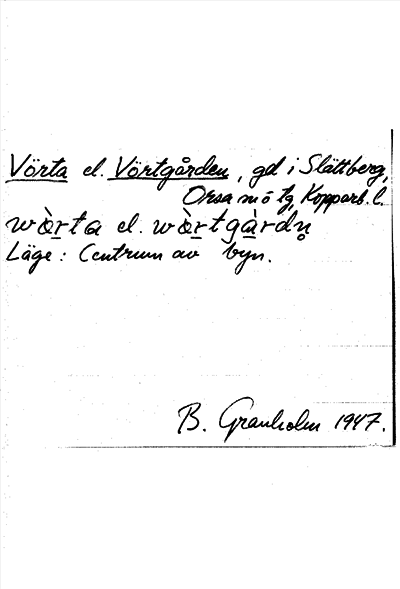 Vörta el. Vörtgården, gd i Slättberg,
Orsa sn ö tg, Kopparb. l.
wòrta el. wòrtgàrdn̥
Läge: Centrum av byn.
B. Granholm 1947.